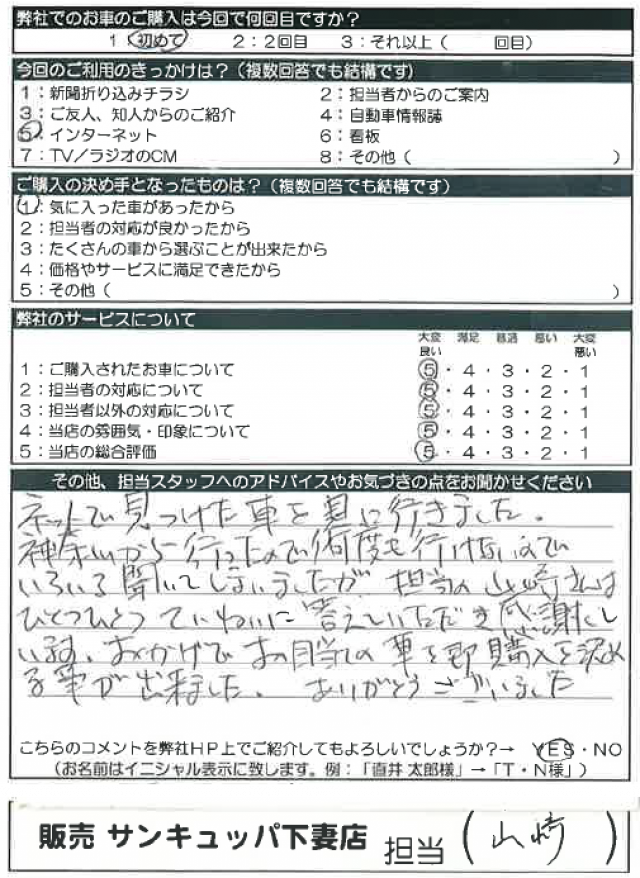 弊社でのお車のご購入は今回で何回目ですか？
1：初めて　2：2回目　3：それ以上（　回目）
今回のご利用のきっかけは？（複数回答でも結構です）
1：新聞折り込みチラシ　2：担当者からのご案内
3：ご友人、知人からのご紹介　4：自動車情報誌
5：インターネット　6：看板
7：TV／ラジオのCM　8：その他（　）
ご購入の決め手となったものは？（複数回答でも結構です）
1：気に入った車があったから
2：担当者の対応が良かったから
3：たくさんの車から選ぶことが出来たから
4：価格やサービスに満足できたから
5：その他（　）
弊社のサービスについて
大変良い　満足　普通　悪い　大変悪い
1：ご購入されたお車について　5・4・3・2・1
2：担当者の対応について　5・4・3・2・1
3：担当者以外の対応について　5・4・3・2・1
4：当店の雰囲気・印象について　5・4・3・2・1
5：当店の総合評価　5・4・3・2・1
その他、担当スタッフへのアドバイスやお気づきの点をお聞かせください
ネットで見つけた車を見に行きました。
神奈川から行ったので何度も行けないので
いろいろ聞いてしまいましたが 担当の山崎さんは
ひとつひとつていねいに答えていただき感謝して
います。おかげでお目当ての車を即購入を決め
る事が出来ました。ありがとうございました
こちらのコメントを弊社HP上でご紹介してもよろしいでしょうか？→　YES・NO
（お名前はイニシャル表示に致します。例：「直井 太郎様」→「T・N様」）
販売 サンキュッパ下妻店　担当（山崎）